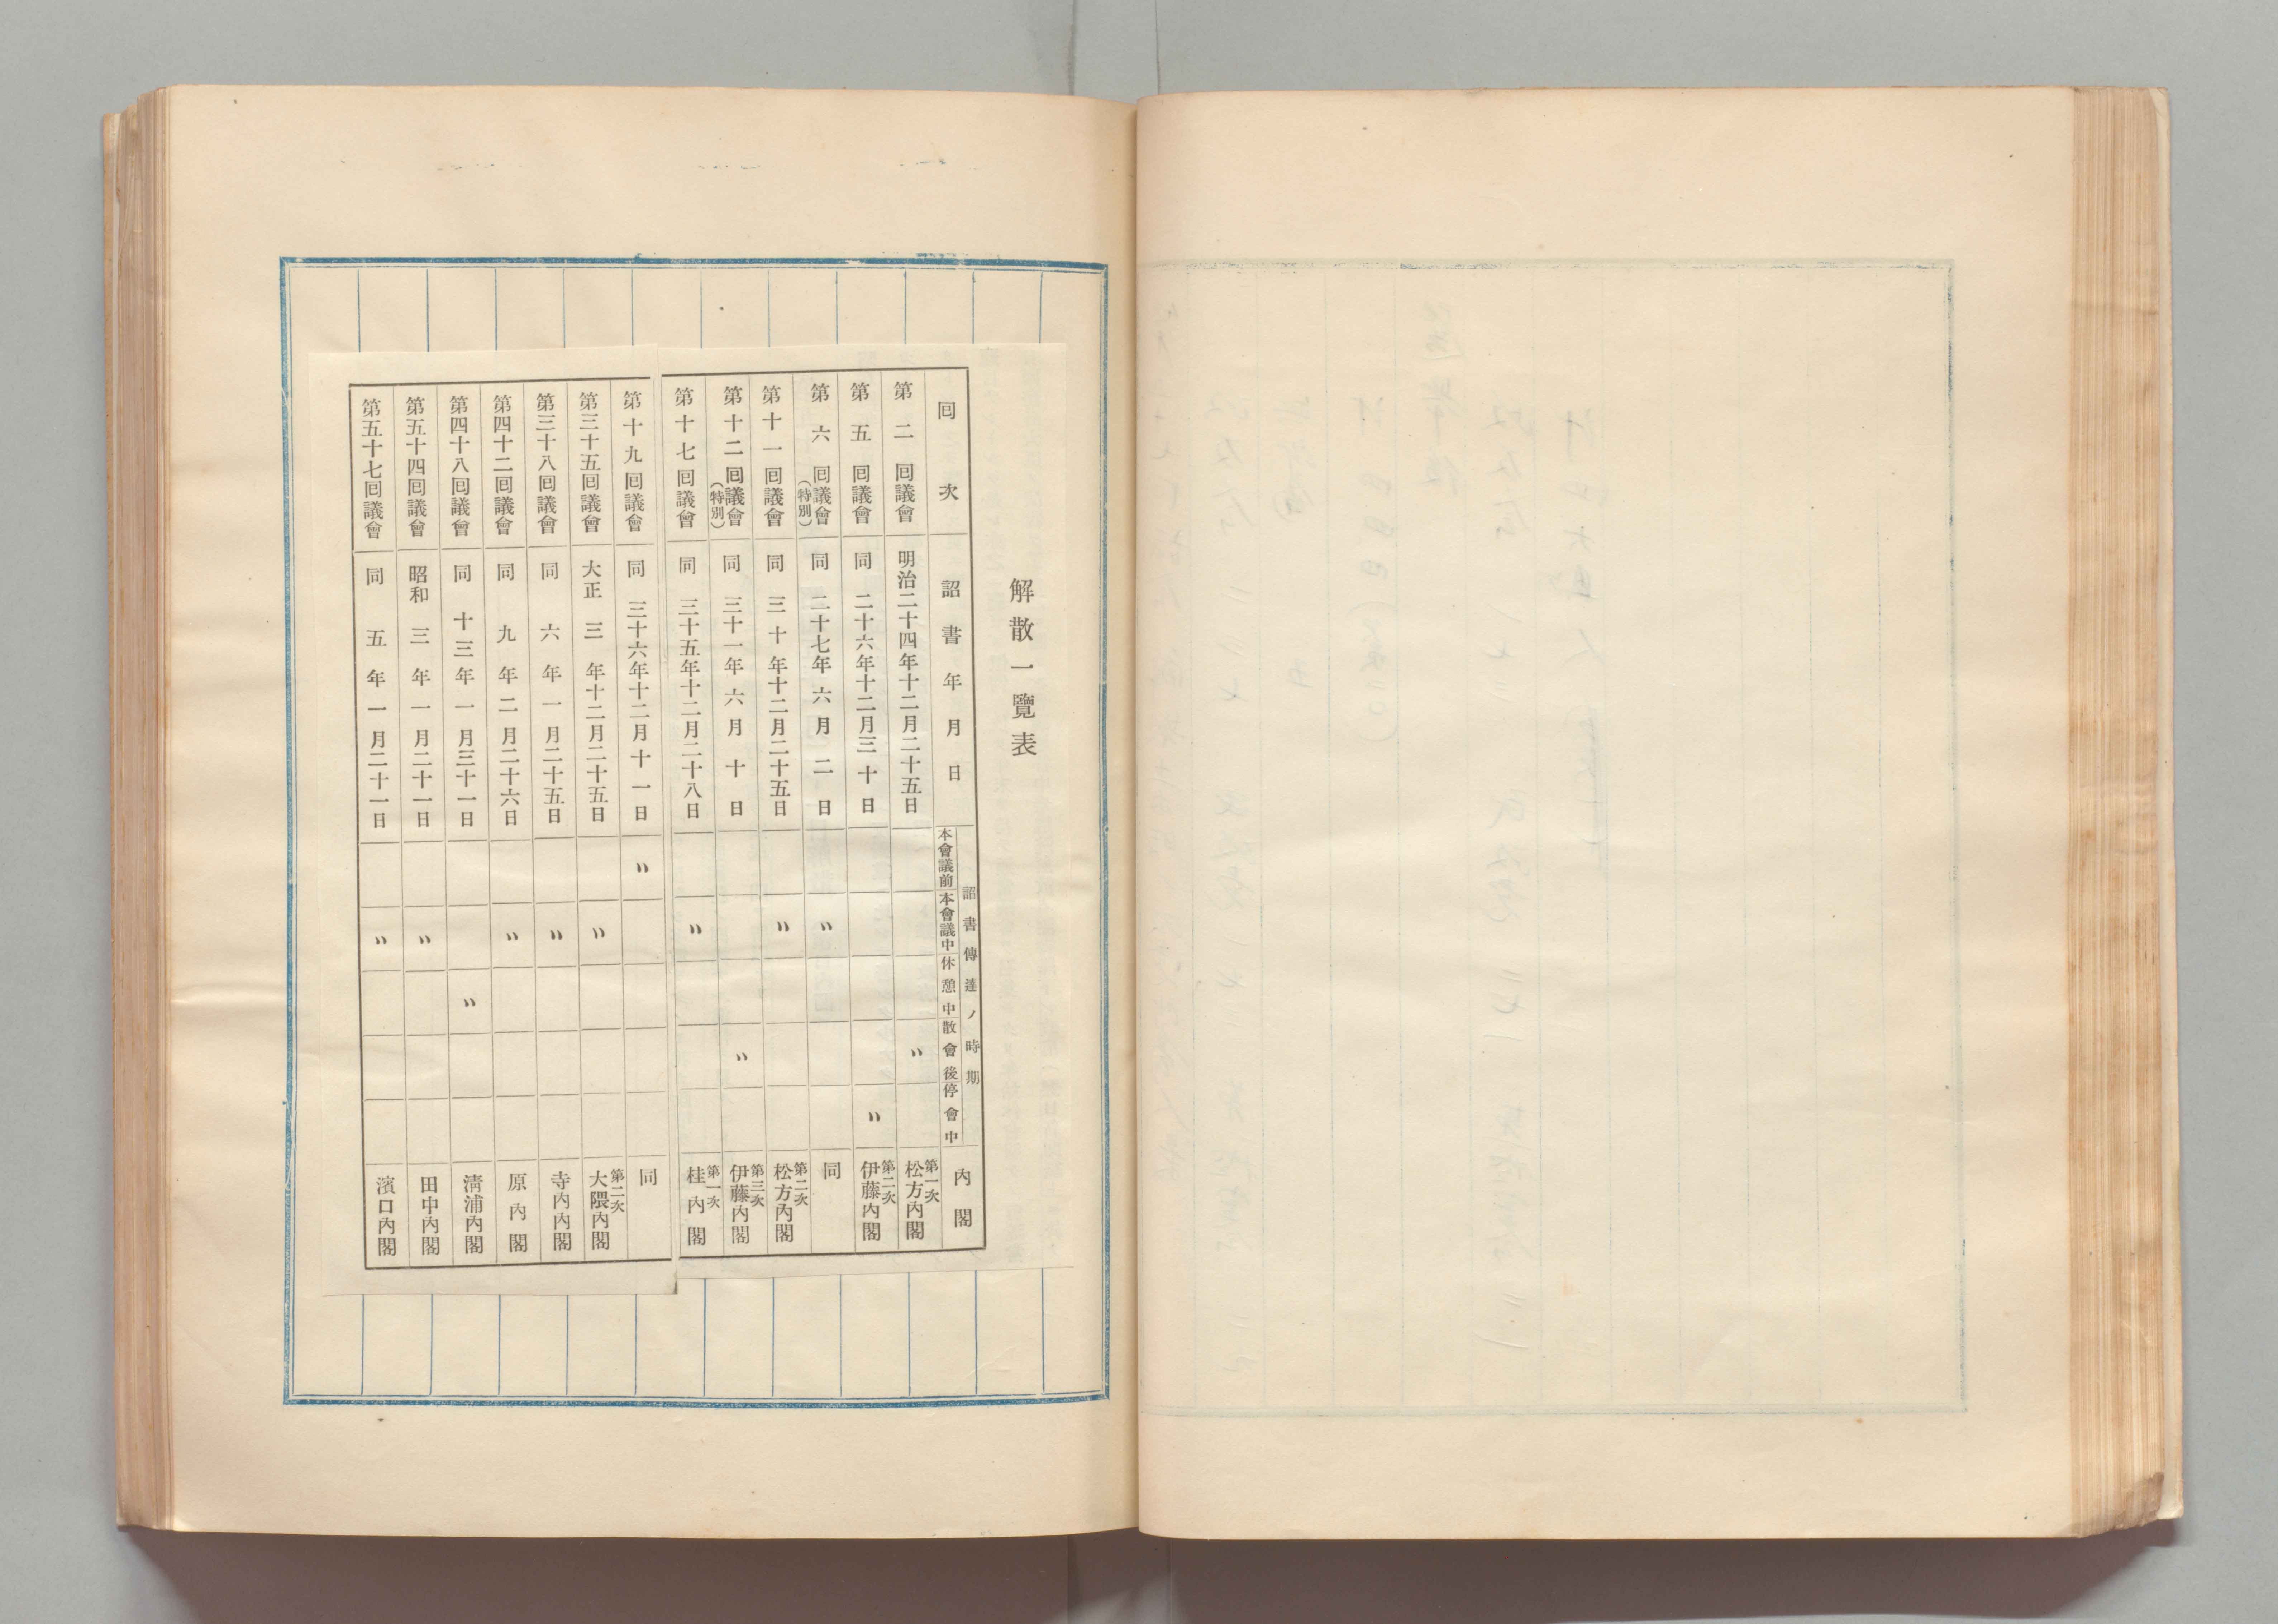 解散一覽表
回次 詔書年月日 詔書傳達ノ時期 內閣
本會議前 本會議中 休憩中 散會後 停會中
第二回議會 明治二十四年十二月二十五日 〃 第一次松方內閣
第五回議會 同二十六年十二月三十日 〃 第二次伊藤內閣
第六回議會(特別) 同二十七年六月二日 〃 同
第十一回議會 同三十年十二月二十五日 〃 第二次松方內閣
第十二回議會(特別) 同三十一年六月十日 〃 第三次伊藤內閣
第十七回議會 同三十五年十二月二十八日 〃 第一次桂內閣
第十九回議會 同三十六年十二月十一日 〃 同
第三十五回議會 大正三年十二月二十五日 〃 第二次大隈內閣
第三十八回議會 同六年一月二十五日 〃 寺內內閣
第四十二回議會 同九年二月二十六日 〃 原內閣
第四十八回議會 同十三年一月三十一日 〃 淸浦內閣
第五十四回議會 昭和三年一月二十一日 〃 田中內閣
第五十七回議會 同五年一月二十一日 〃 濱口內閣